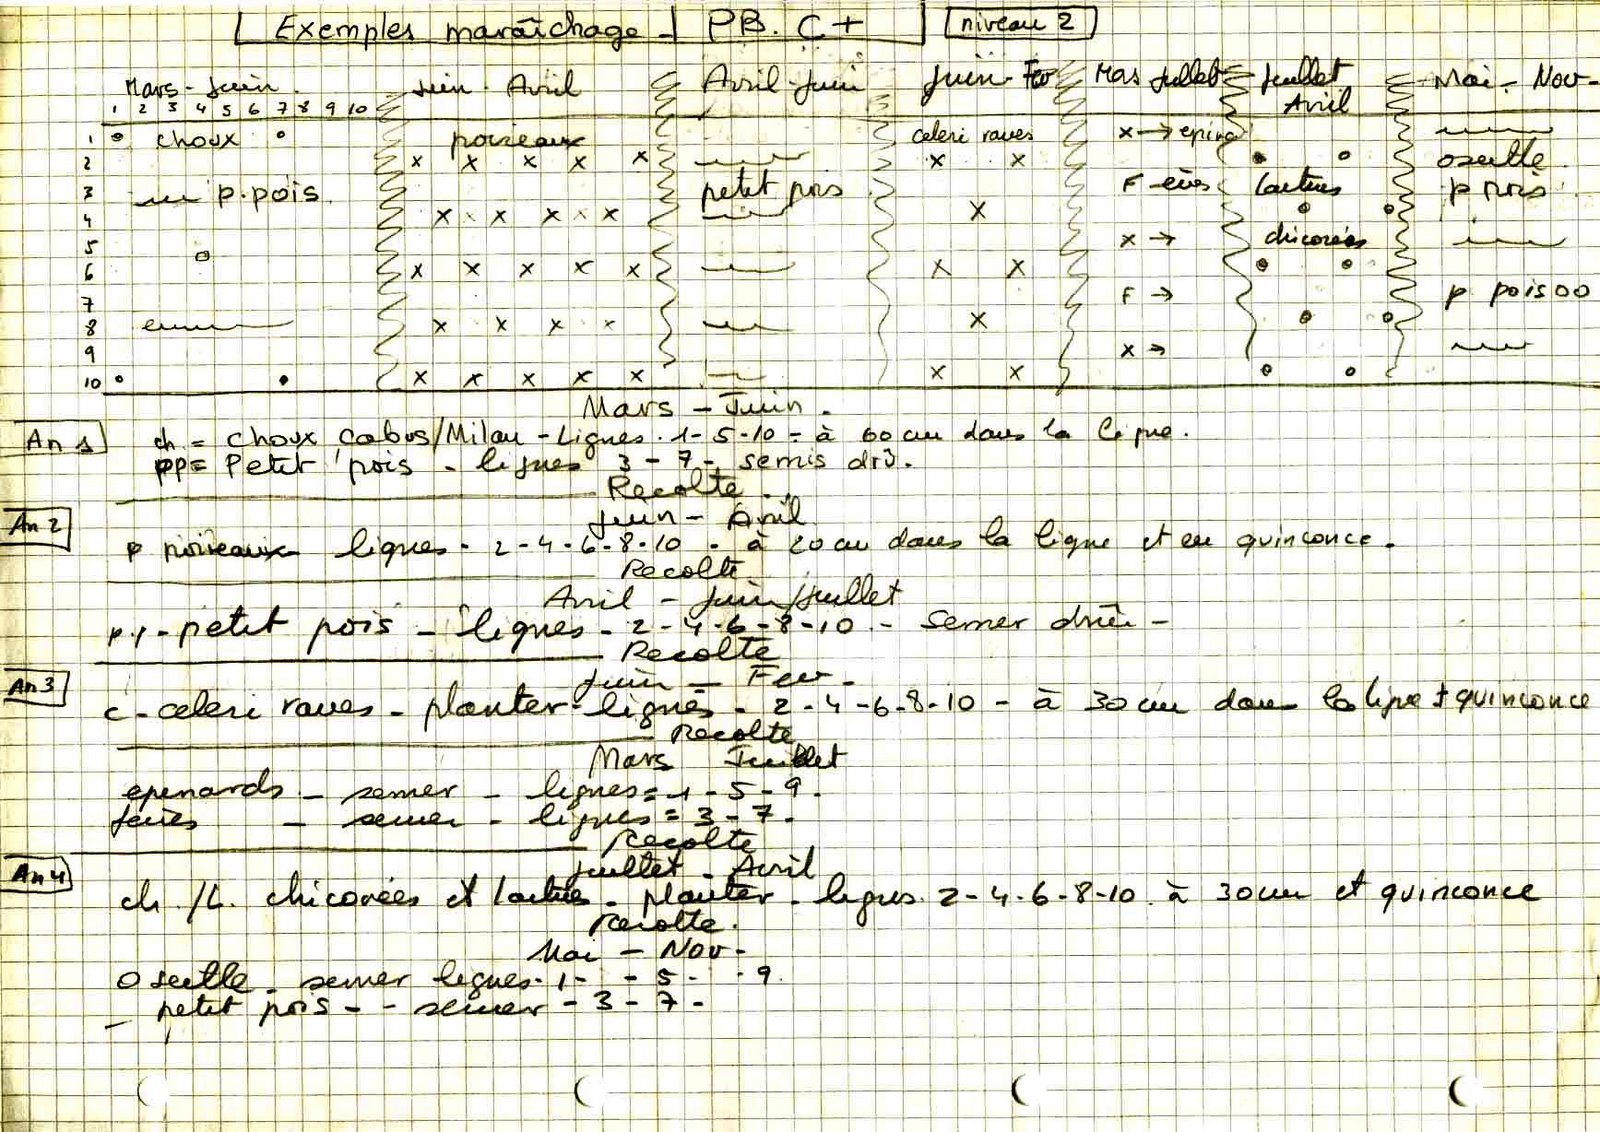 Exemples maraîchage - PB. C+ niveau 2
Mars - Juin. Juin - Avril Avril - Juin Juin - Fev Mars Juillet Juillet Avril Mai - Nov -
1 2 3 4 5 6 7 8 9 10
1 choux poireaux celeri raves x → epina
2 x x x x x x x oseille
3 p. pois. petit pois F - eves laitues p pois
4 x x x x x
5 x → chicorées
6 x x x x x x x
7 F → p pois
8 x x x x x
9 x →
10 x x x x x x x
Mars - Juin.
An 1 ch = choux cabus/Milan - Lignes. 1 - 5 - 10 = à 60 cm dans la ligne.
pp = Petit pois - lignes 3 - 7 - semis drû.
Recolte
An 2 Juin - Avril
p poireaux lignes - 2 - 4 - 6 - 8 - 10 - à 20 cm dans la ligne et en quinconce.
Recolte
Avril - Juin/Juillet
p.p - petit pois - lignes - 2 - 4 - 6 - 8 - 10 - semer drû -
Recolte
An 3 Juin - Fev -
c - celeri raves - planter - lignes - 2 - 4 - 6 - 8 - 10 - à 30 cm dans la ligne + quinconce
Recolte
Mars Juillet
epinards - semer - lignes = 1 - 5 - 9.
feves - semer - lignes = 3 - 7 -
Recolte
An 4 Juillet - Avril
ch. /L. chicorées et laitues - planter - lignes. 2 - 4 - 6 - 8 - 10. à 30 cm et quinconce
Recolte.
Mai - Nov -
Oseille - semer lignes - 1 - - 5 - - 9.
- petit pois - - semer - 3 - 7 -